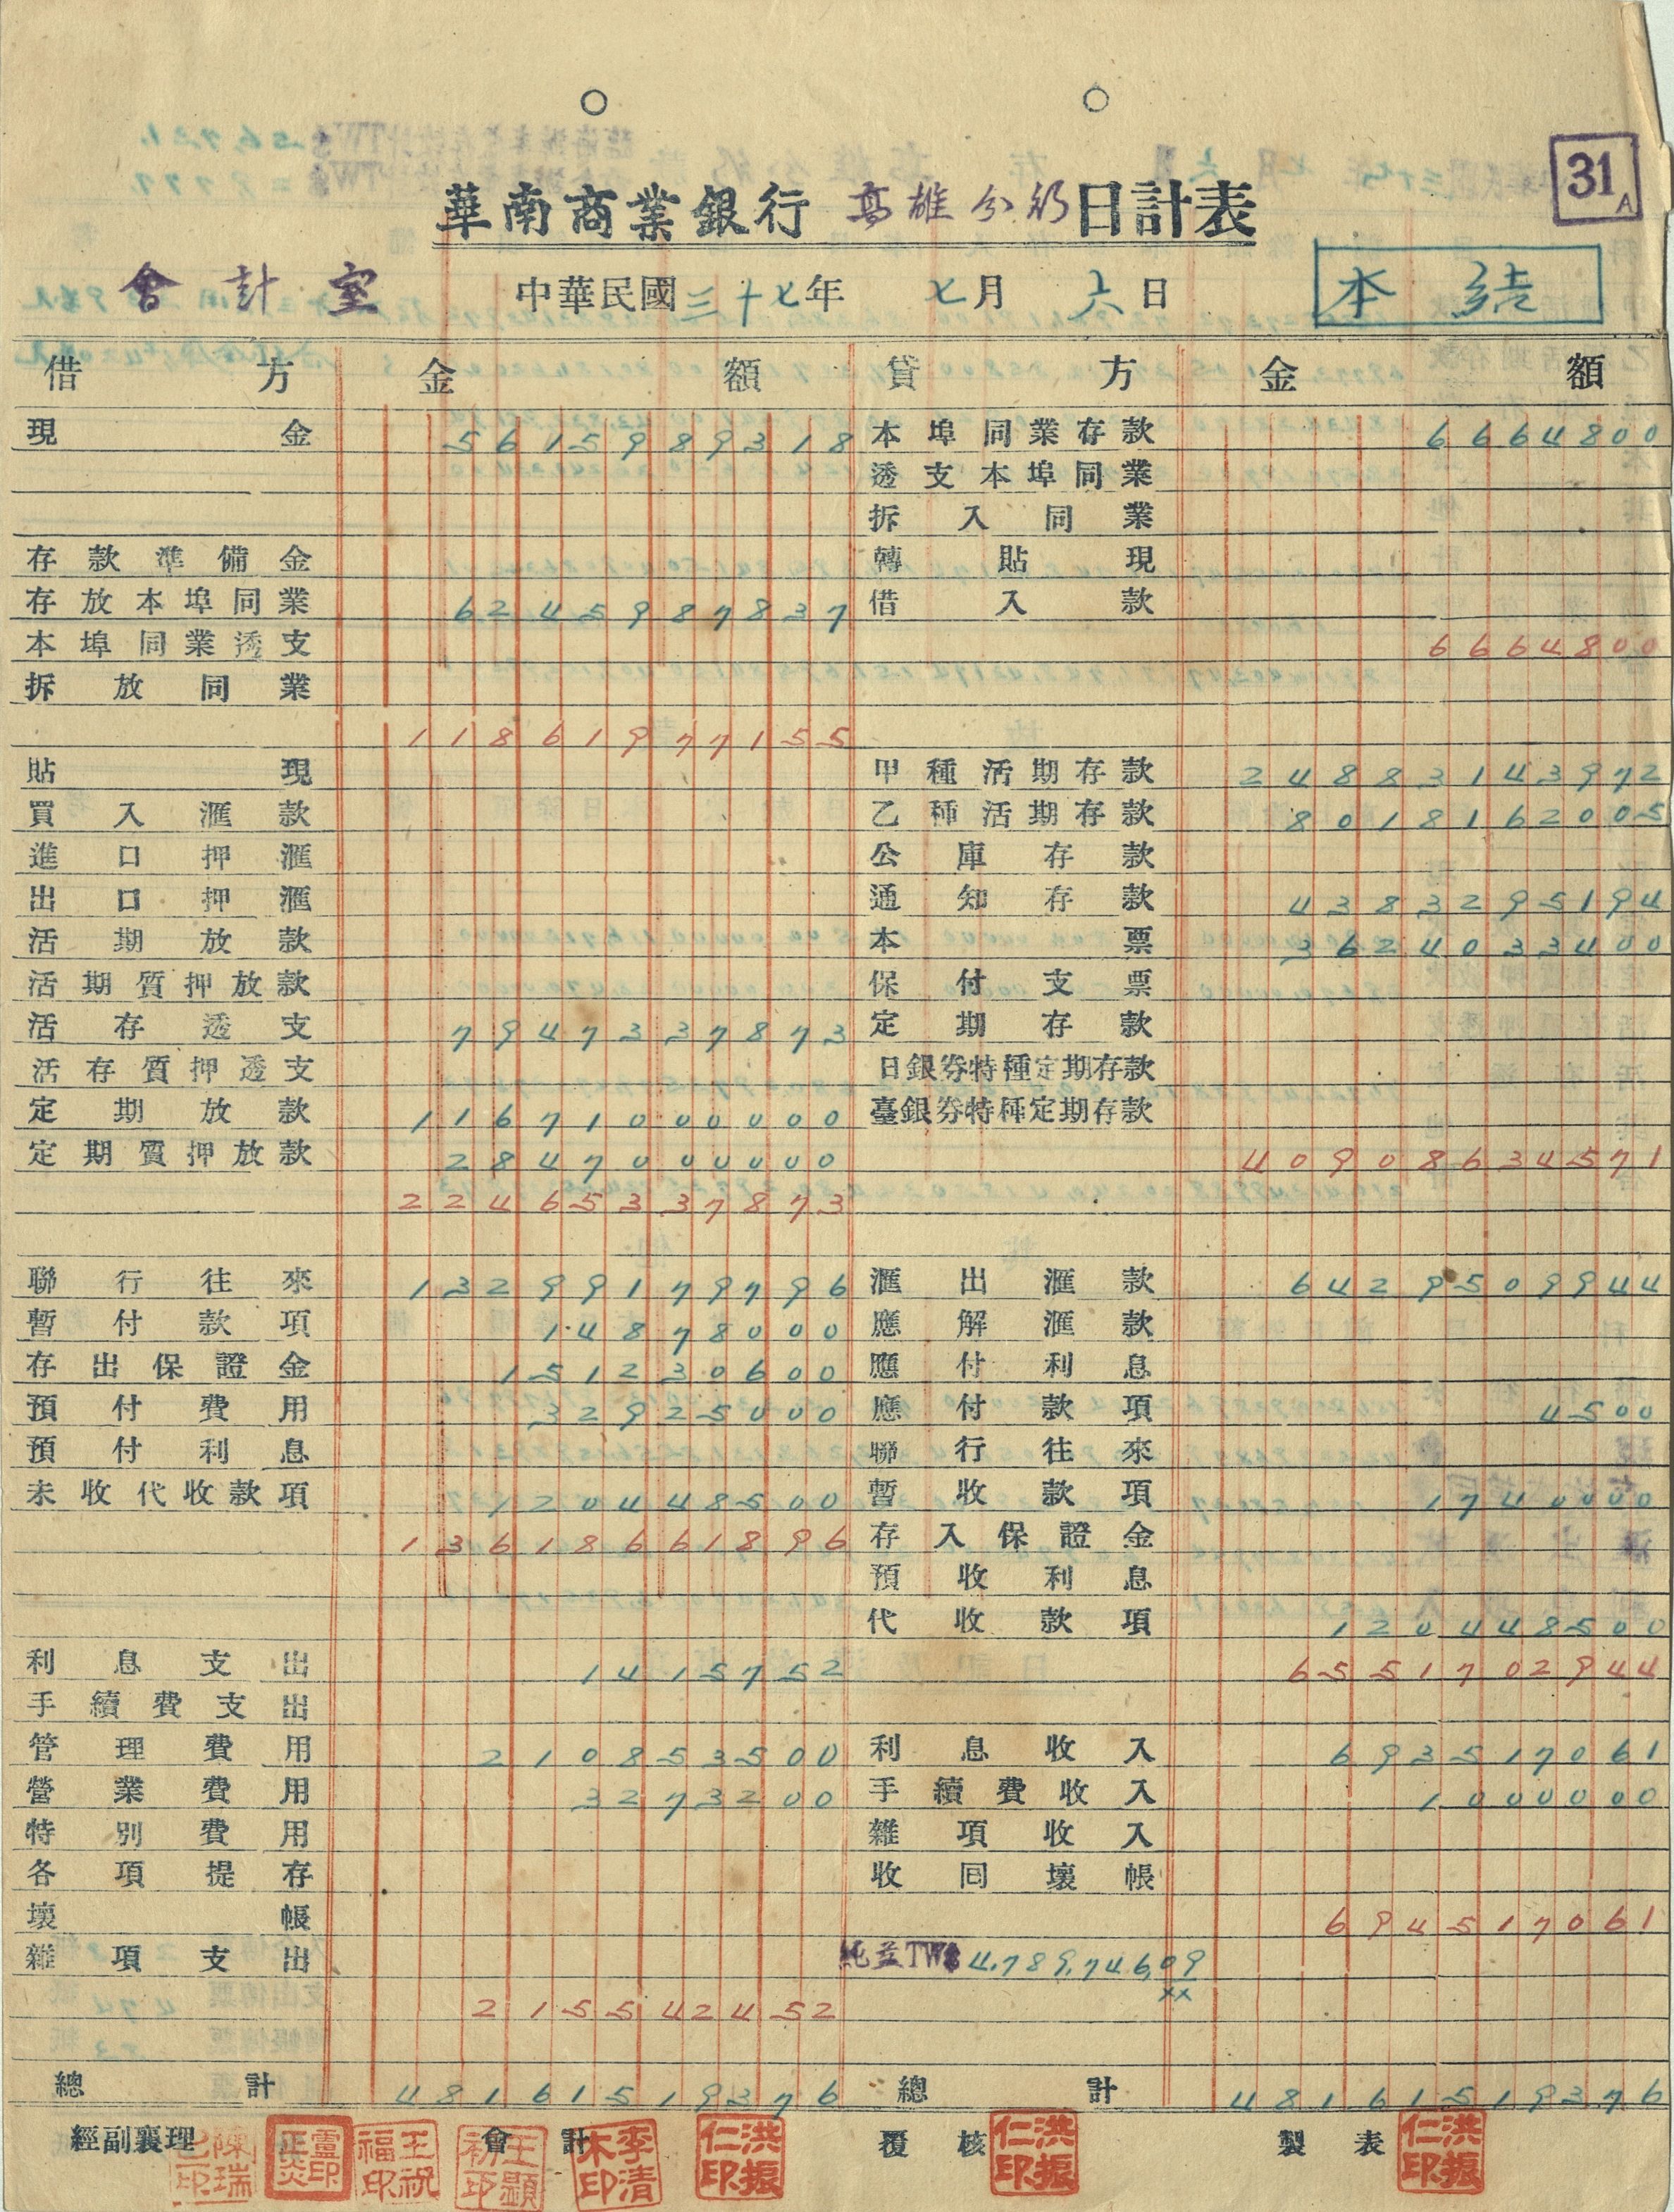 31A
華南商業銀行 高雄分行 日計表
會計室 中華民國三十七年 七月 六日 本結
借方 金額 貸方 金額
現金 5615989318 本埠同業存款 6664800
透支本埠同業
拆入同業
存款準備金 轉貼現
存放本埠同業 6245987837 借入款
本埠同業透支 6664800
拆放同業
11861977155
貼現 甲種活期存款 24883143972
買入滙款 乙種活期存款 8018162005
進口押滙 公庫存款
出口押滙 通知存款 4383295194
活期放款 本票 3624033400
活期質押放款 保付支票
活存透支 7947337873 定期存款
活存質押透支 日銀券特種定期存款
定期放款 11671000000 臺銀券特種定期存款
定期質押放款 2847000000 40908634571
22465337873
聯行往來 13299179796 滙出滙款 6429509944
暫付款項 14878000 應解滙款
存出保證金 151230600 應付利息
預付費用 32925000 應付款項 4500
預付利息 聯行往來
未收代收款項 120448500 暫收款項 1740000
13618661896 存入保證金
預收利息
代收款項 120448500
利息支出 1415752 6551702944
手續費支出
管理費用 210853500 利息收入 693517061
營業費用 3273200 手續費收入 1000000
特別費用 雜項收入
各項提存 收回壞帳
壞帳 694517061
雜項支出 純益TW$4,789,746.09
xx
215542452
總計 48161519376 總計 48161519376
經副襄理 會計 覆核 製表
王祝福印 李清木印 洪振仁印 洪振仁印 洪振仁印